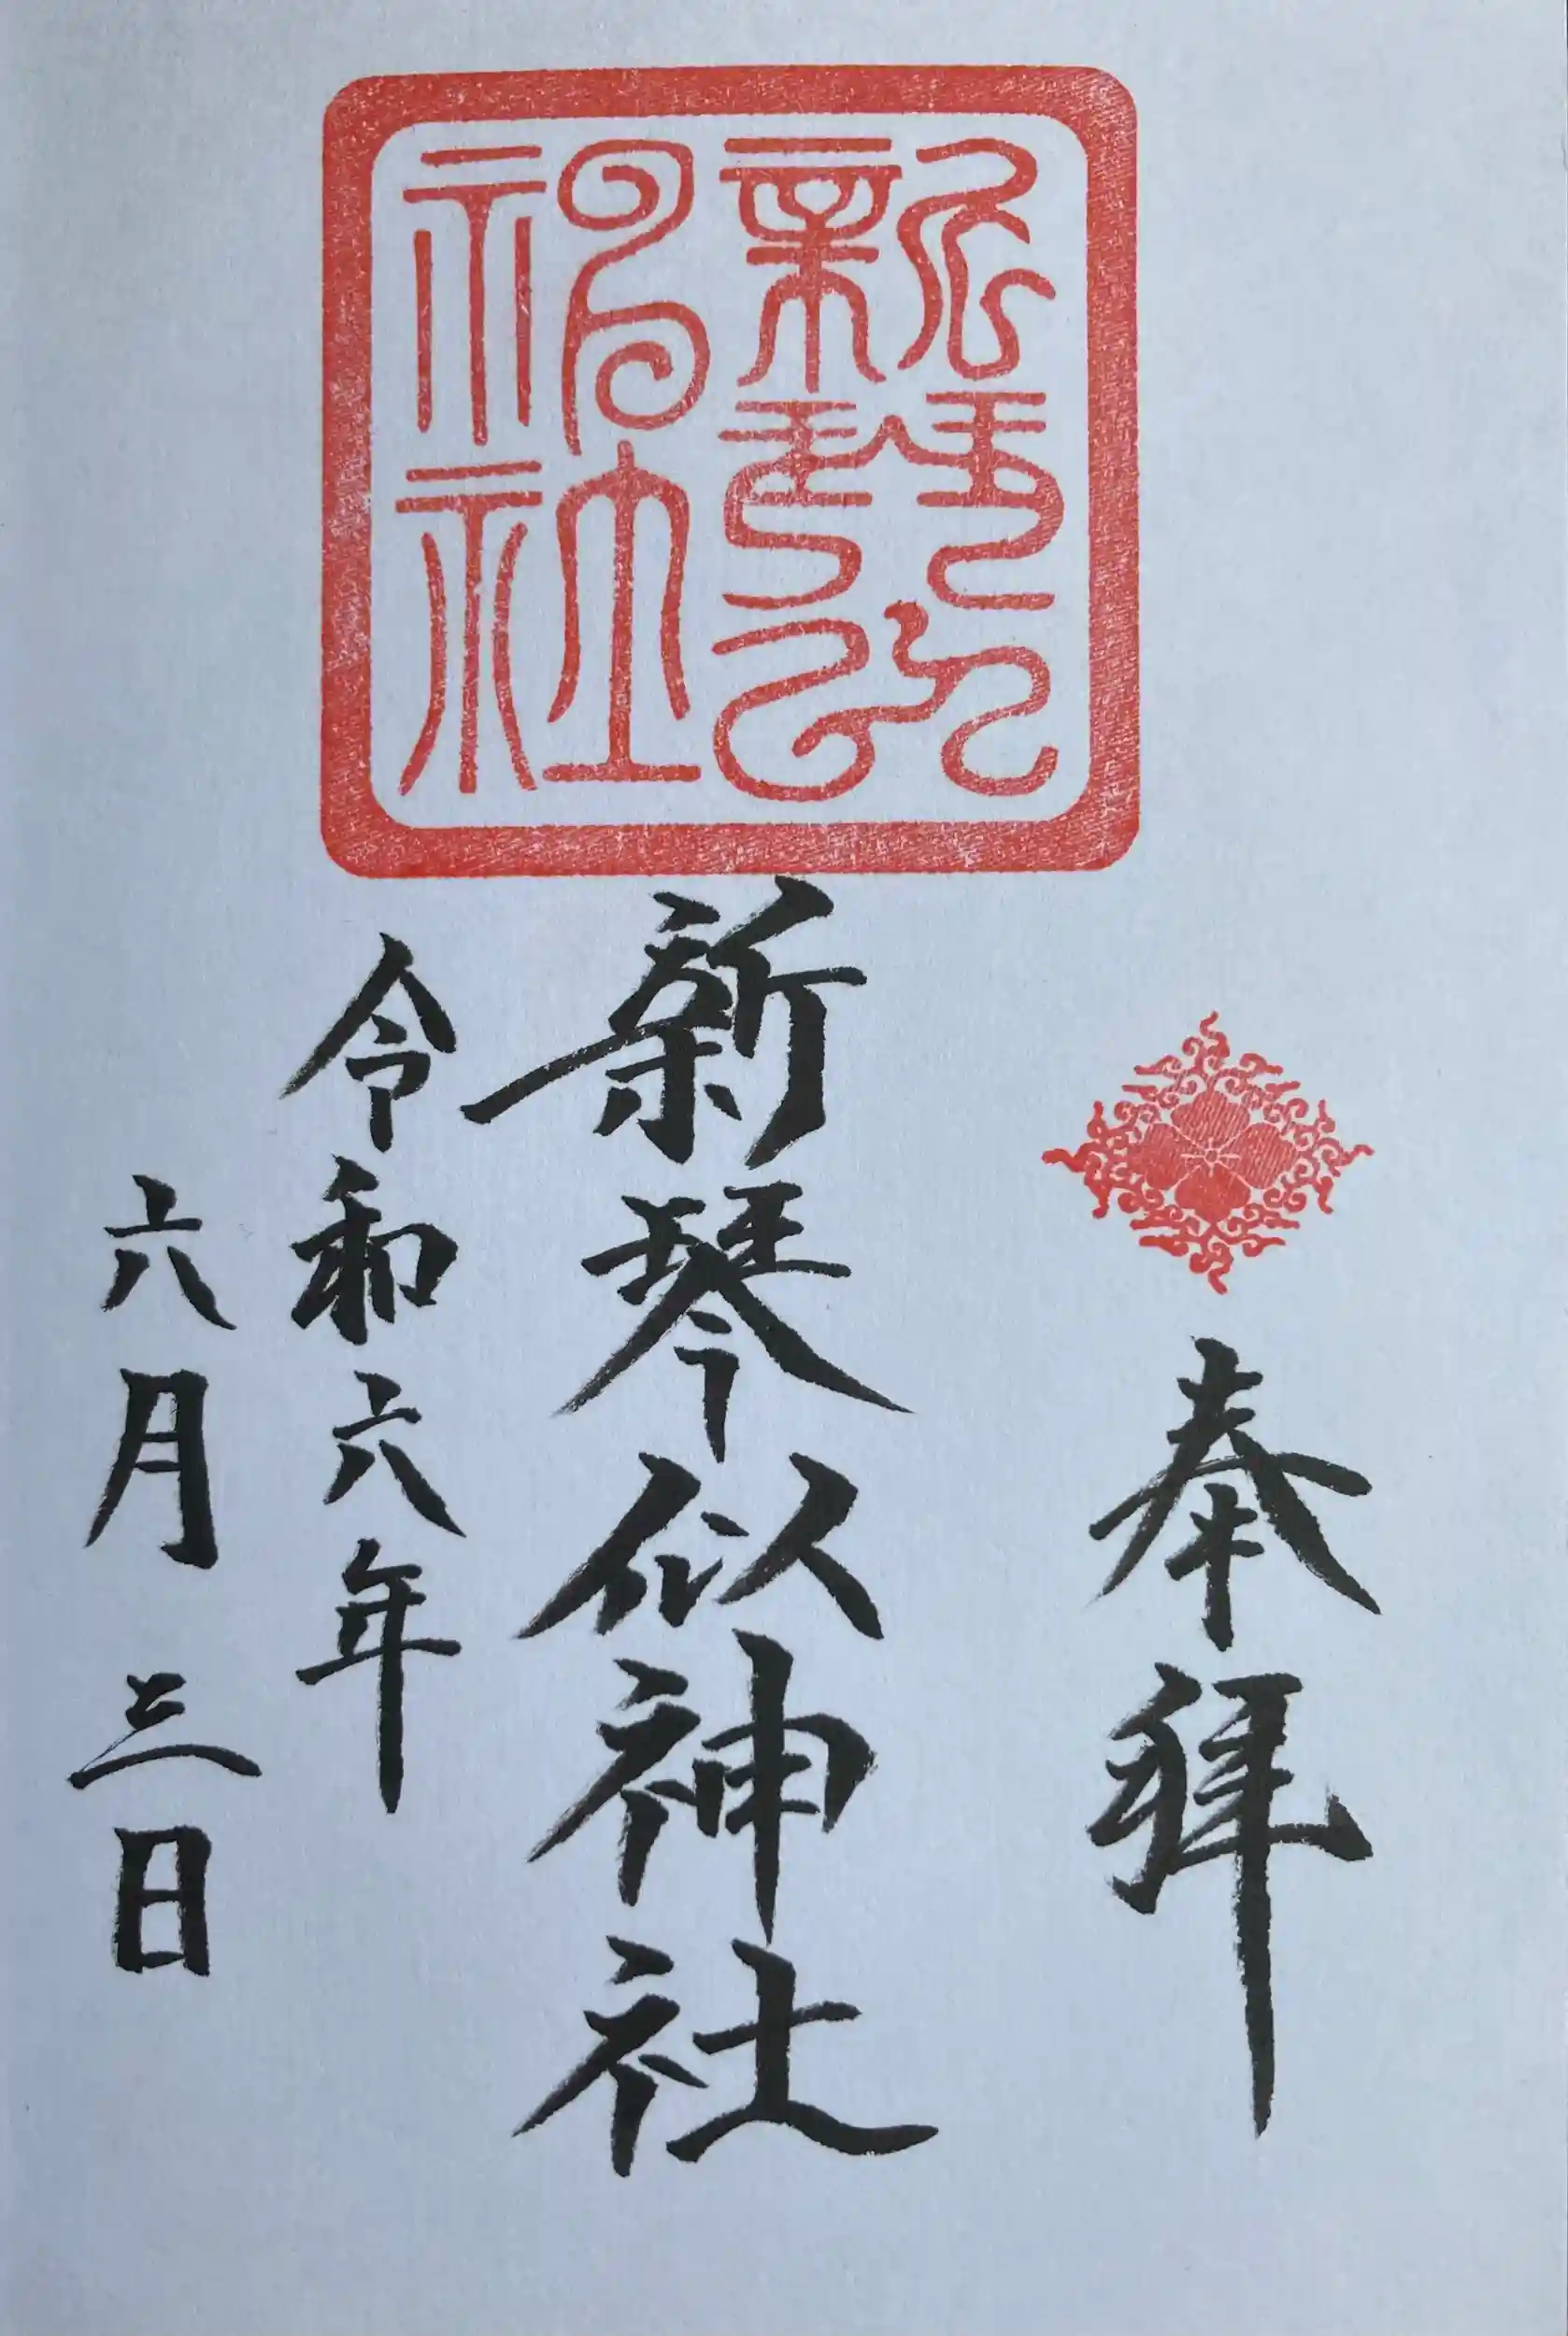 新琴似神社
奉拝
新琴似神社
令和六年
六月三日